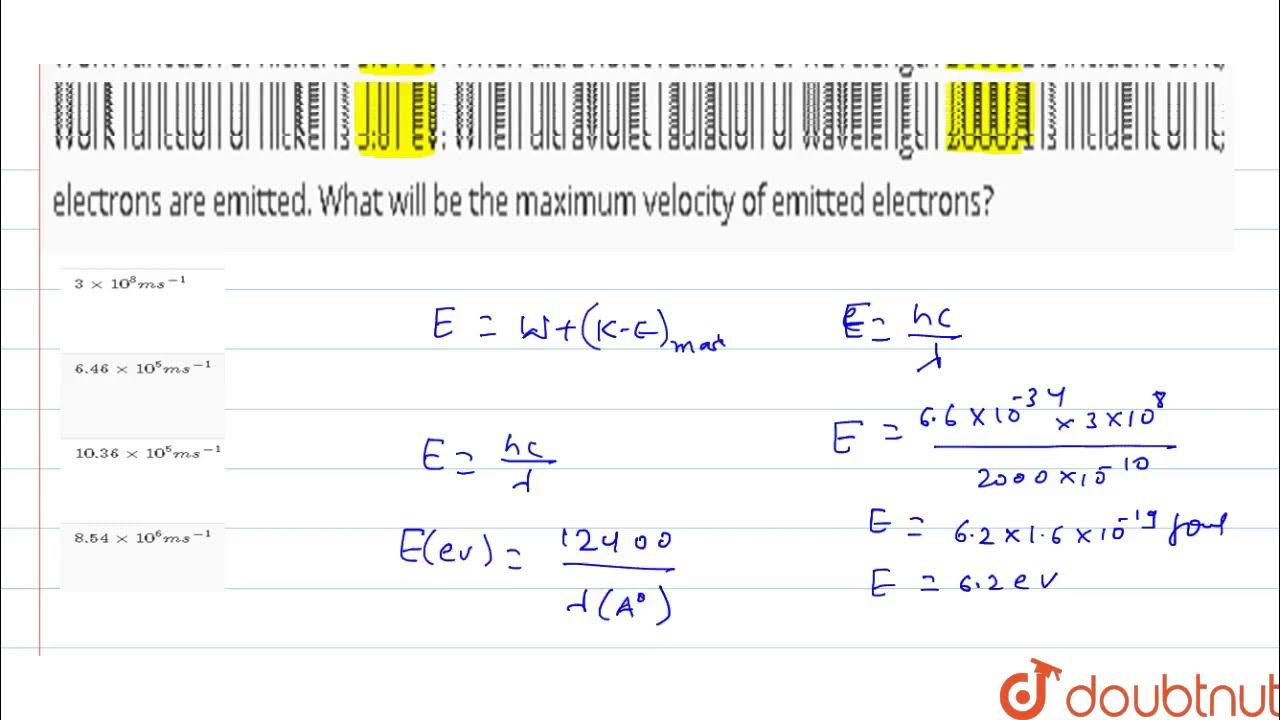 Work function of nickel is 5.01 eV. When ultraviolet radiation of wavelength 2000Å is incident on it,
electrons are emitted. What will be the maximum velocity of emitted electrons?
3 × 10⁸ms⁻¹
6.46 × 10⁵ms⁻¹
10.36 × 10⁵ms⁻¹
8.54 × 10⁶ms⁻¹
E = W+(K-E)max
E = hc/λ
E(ev) = 12400/λ(A°)
E = hc/λ
E = 6.6×10⁻³⁴ × 3×10⁸/2000×10⁻¹⁰
E = 6.2×1.6×10⁻¹⁹ Joul
E = 6.2 ev
doubtnut